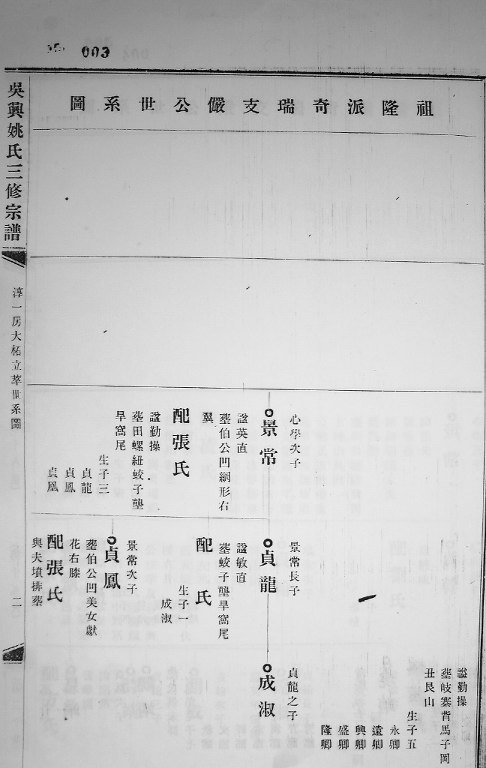 003
祖隆派奇瑞支儼公世系圖
諡勤操
塟岐寨背馬子岡
丑艮山
生子五
永卿
遠卿
興卿
盛卿
隆卿
心學次子
景常
諡英直
塟伯公凹網形右
翼
配張氏
諡勤操
塟田螺紐蛟子壟
旱窩尾
生子三
貞龍
貞鳳
貞凰
景常長子
貞龍
諡敏直
塟蛟子壟旱窩尾
配 氏
生子一
成淑
景常次子
貞鳳
塟伯公凹美女獻
花右膝
配張氏
與夫墳排塟
貞龍之子
成淑
吳興姚氏三修宗譜
淳一房大柘立萃世系圖
二